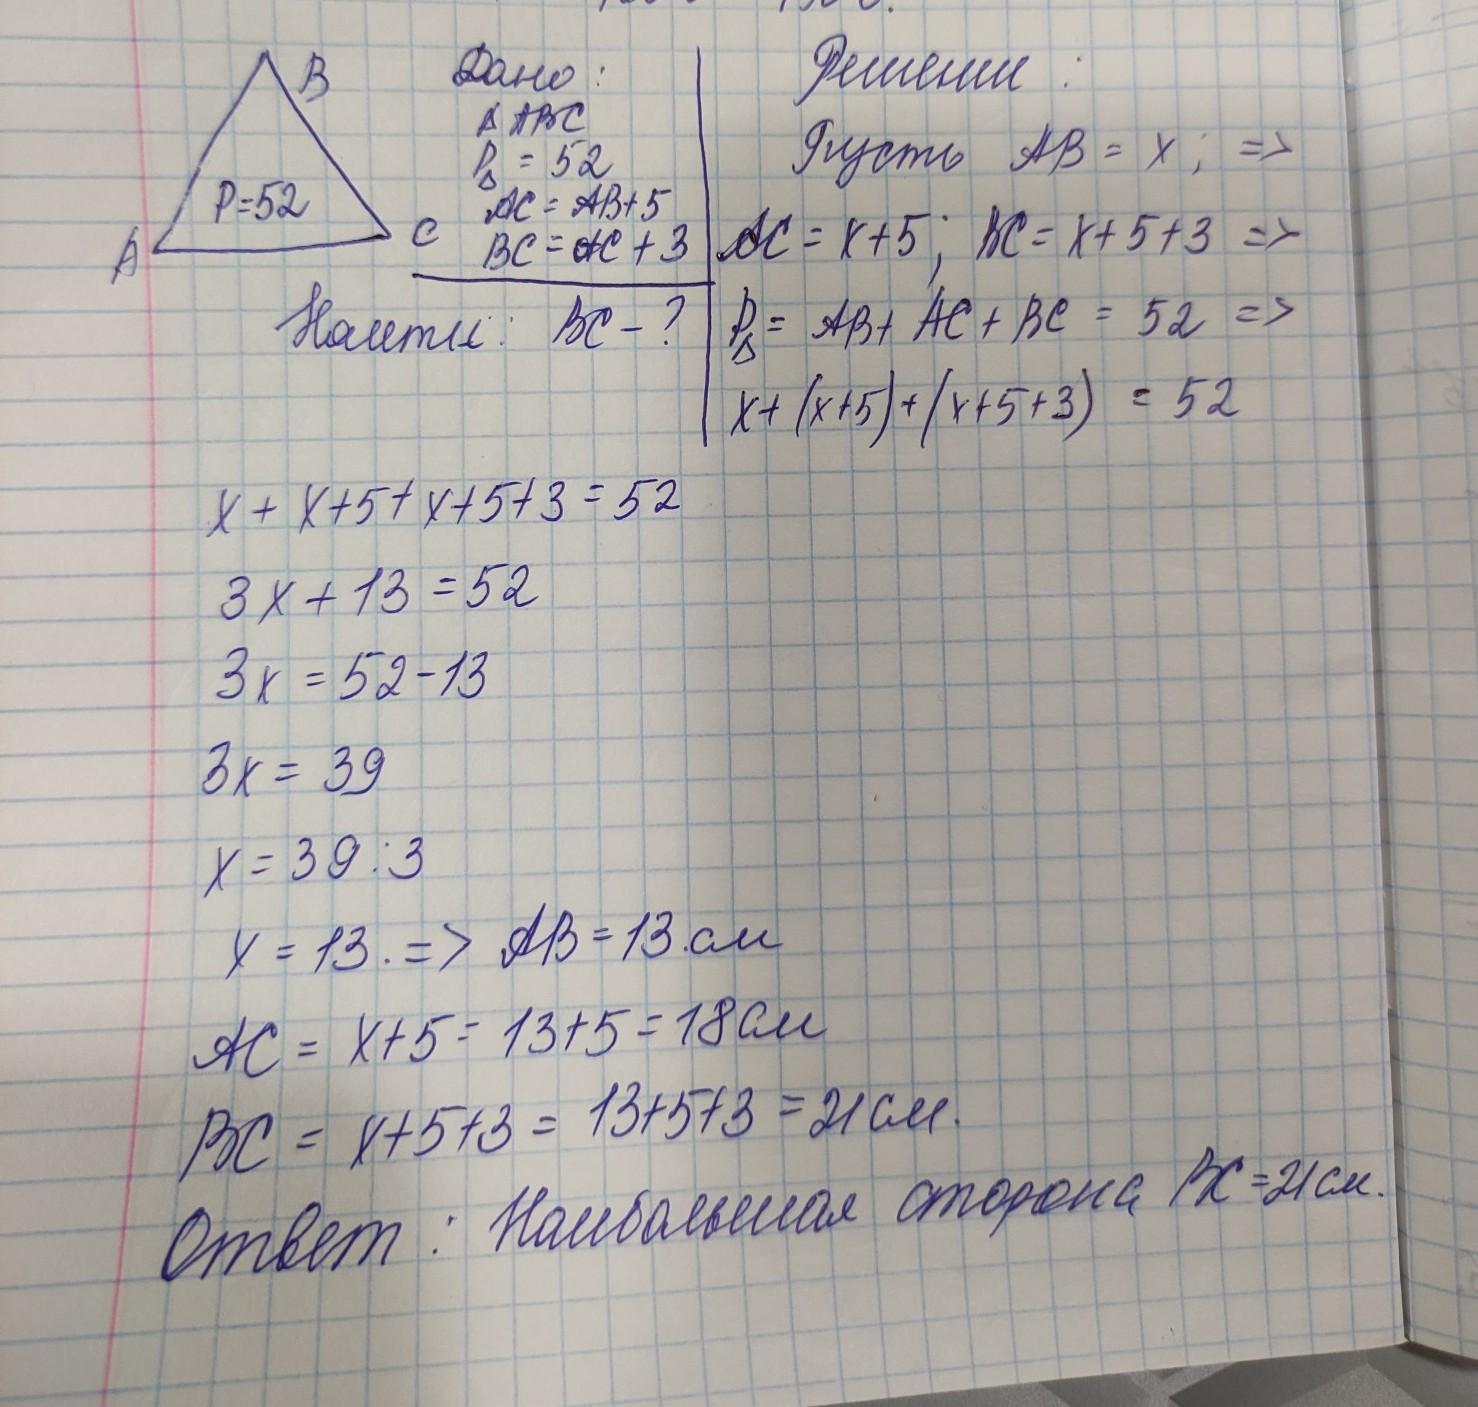 B
P=52
A
C
Дано:
Δ ABC
PΔ = 52
AC = AB+5
BC = AC + 3
Найти: BC - ?
Решение:
Пусть AB = x; =>
AC = x+5; BC = x+5+3 =>
PΔ = AB + AC + BC = 52 =>
x+(x+5)+(x+5+3) = 52
x + x+5+x+5+3 = 52
3x + 13 = 52
3x = 52-13
3x = 39
x = 39:3
x = 13. => AB = 13.см
AC = x+5 = 13+5 = 18см
BC = x+5+3 = 13+5+3 = 21см.
Ответ: Наибольшая сторона BC = 21см.